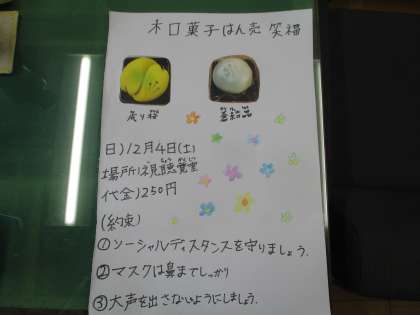 和菓子はん売 笑福
日)12月4日(土)
場所)視聴覚室
代金)250円
(約束)
①ソーシャルディスタンスを守りましょう.
②マスクは鼻までしっかり
③大声を出さないようにしましょう.